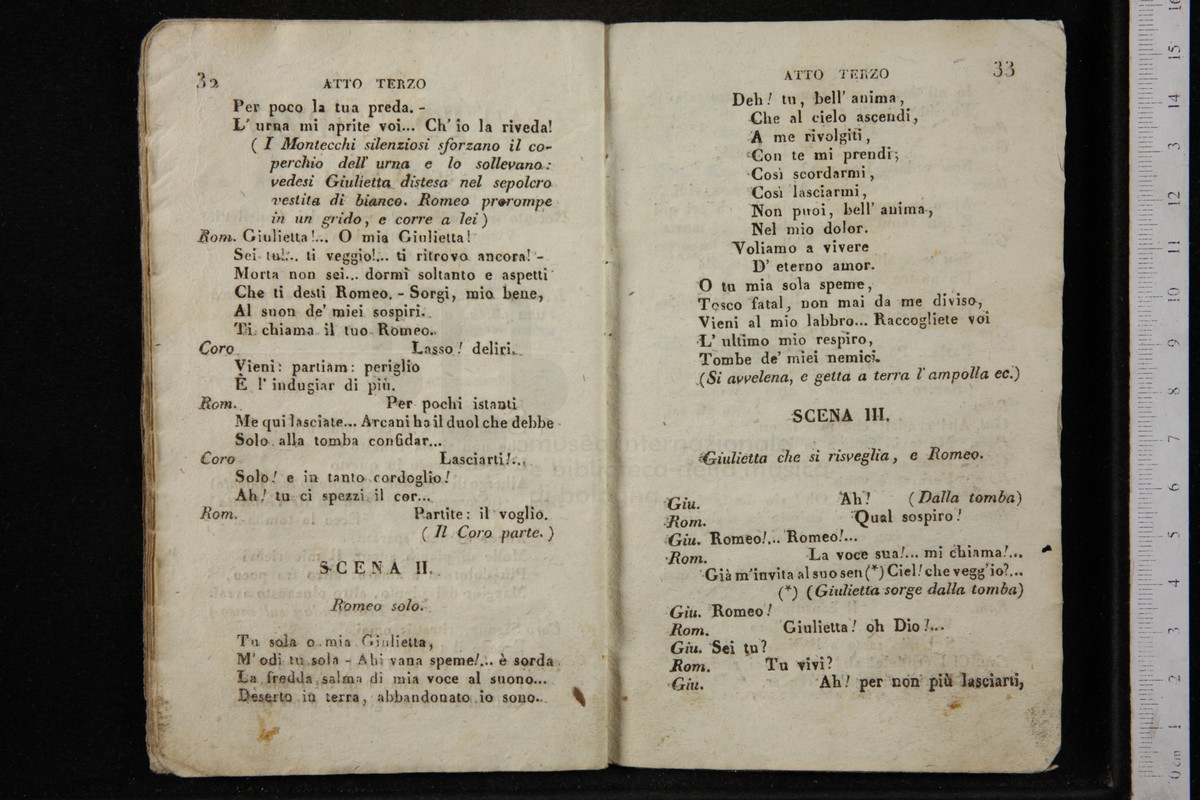 32 ATTO TERZO
Per poco la tua preda. -
L' urna mi aprite voi... Ch' io la riveda!
( I Montecchi silenziosi sforzano il co-
perchio dell' urna e lo sollevano:
vedesi Giulietta distesa nel sepolcro
vestita di bianco. Romeo prorompe
in un grido, e corre a lei )
Rom. Giulietta!... O mia Giulietta!
Sei tu!... ti veggio!... ti ritrovo ancora! -
Morta non sei... dormi soltanto e aspetti
Che ti desti Romeo. - Sorgi, mio bene,
Al suon de' miei sospiri.
Ti chiama il tuo Romeo.
Coro Lasso! deliri.
Vieni: partiam: periglio
È l' indugiar di più.
Rom. Per pochi istanti
Me qui lasciate... Arcani ha il duol che debbe
Solo alla tomba confidar...
Coro Lasciarti!...
Solo! e in tanto cordoglio!
Ah! tu ci spezzi il cor...
Rom. Partite: il voglio.
( Il Coro parte. )
SCENA II.
Romeo solo.
Tu sola o mia Giulietta,
M' odi tu sola - Ahi vana speme!... è sorda
La fredda salma di mia voce al suono...
Deserto in terra, abbandonato io sono.
ATTO TERZO 33
Deh! tu, bell' anima,
Che al cielo ascendi,
A me rivolgiti,
Con te mi prendi;
Così scordarmi,
Così lasciarmi,
Non puoi, bell' anima,
Nel mio dolor.
Voliamo a vivere
D' eterno amor.
O tu mia sola speme,
Tosco fatal, non mai da me diviso,
Vieni al mio labbro... Raccogliete voi
L' ultimo mio respiro,
Tombe de' miei nemici.
(Si avvelena, e getta a terra l' ampolla ec.)
SCENA III.
Giulietta che si risveglia, e Romeo.
Giu. Ah! (Dalla tomba)
Rom. Qual sospiro!
Giu. Romeo!... Romeo!...
Rom. La voce sua!... mi chiama!...
Già m'invita al suo sen (*) Ciel! che vegg'io?...
(*) (Giulietta sorge dalla tomba)
Giu. Romeo!
Rom. Giulietta! oh Dio!...
Giu. Sei tu?
Rom. Tu vivi?
Giu. Ah! per non più lasciarti,
museo internazionale
e biblioteca della musica
di bologna
0 cm 1 2 3 4 5 6 7 8 9 10 11 12 13 14 15 16